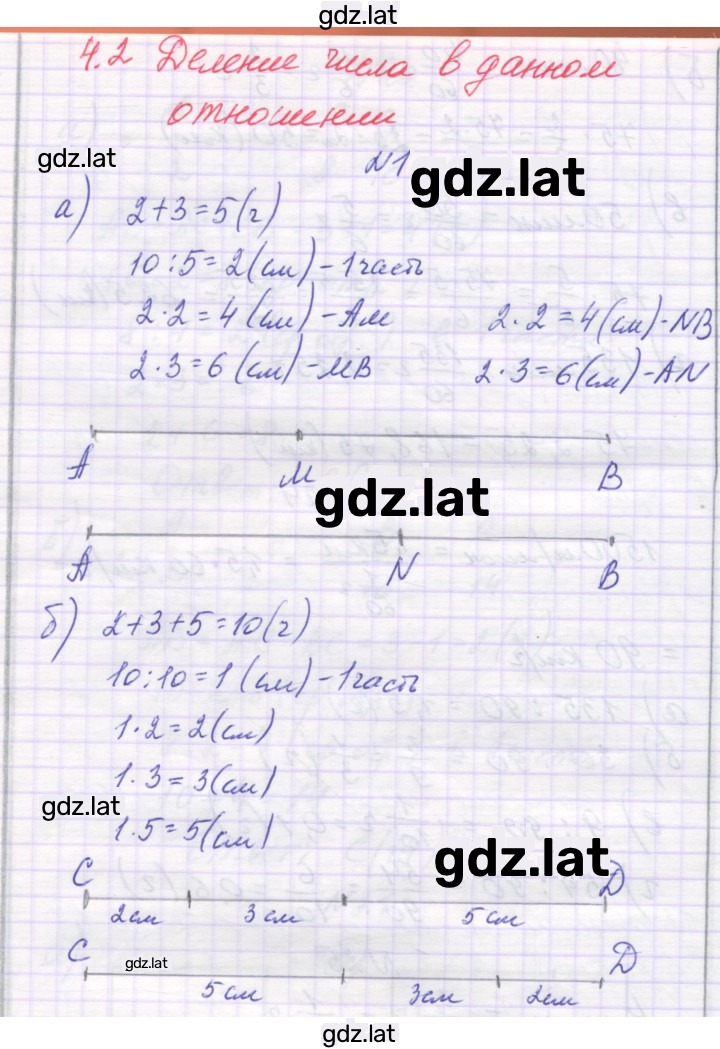 gdz.lat
4.2 Деление числа в данном
отношении
gdz.lat
№1
gdz.lat
а) 2+3=5(г)
10:5=2(см)-1часть
2·2=4(см)-АМ 2·2=4(см)-NB
2·3=6(см)-МВ 2·3=6(см)-AN
А М В
gdz.lat
А N В
б) 2+3+5=10(г)
10:10=1(см)-1часть
1·2=2(см)
1·3=3(см)
gdz.lat
1·5=5(см)
gdz.lat
C D
2см 3см 5см
C gdz.lat D
5см 3см 2см
gdz.lat